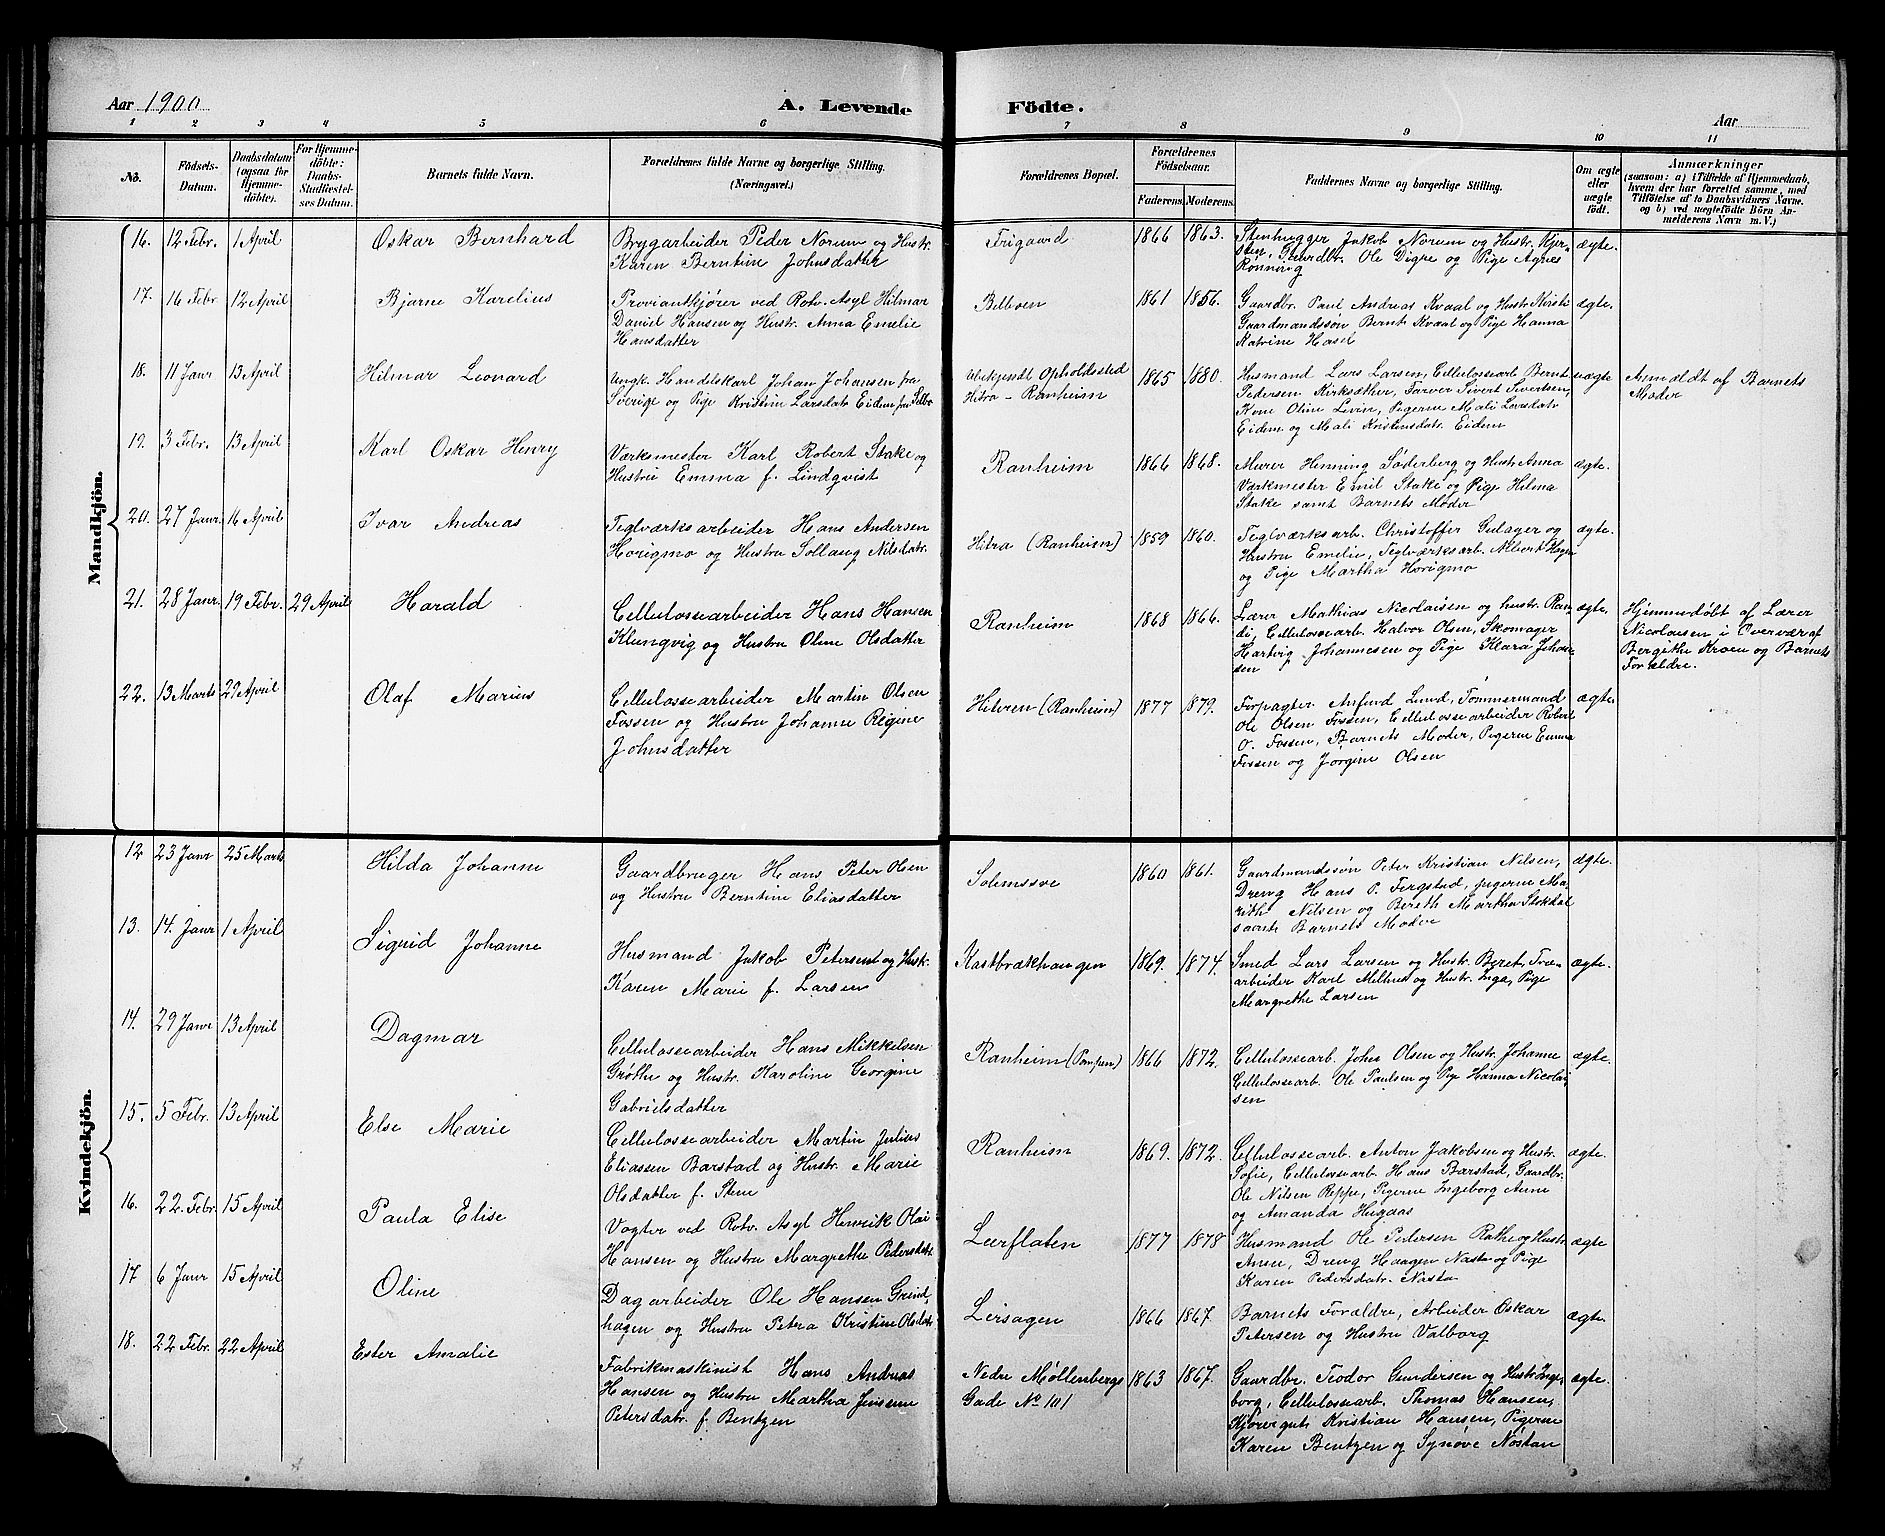 Aar 1900
A. Levende Födte.
Aar
1 2 3 4 5 6 7 8 9 10 11
No.
Födsels-
Datum.
Daabsdatum
(ogsaa for
Hjemme-
döbte).
For Hjemme-
döbte:
Daabs-
Stadfæstel-
ses Datum.
Barnets fulde Navn.
Forældrenes fulde Navne og borgerlige Stilling.
(Næringsvei.)
Forældrenes Bopæl.
Forældrenes
Födselsaar.
Faderens. Moderens.
Faddernes Navne og borgerlige Stilling.
Om ægte
eller
uægte
födt.
Anmærkninger
(saasom: a) i Tilfælde af Hjemmedaab,
hvem der har forrettet samme, med
Tilföielse af to Daabsvidners Navne,
og b) ved uægtefödte Börn An-
melderens Navn m. V.)
Mandkjön.
16. 12 Febr. 1 April Oskar Bernhard
Brygarbeider Peder Norum og Hustr.
Karen Berntine Johnsdatter
Frigaard 1866 1863.
Stenhugger Jakob Norum og Hustr. Kjer-
sten, Gaardbr. Ole Digre og Pige Agnes
Rönning
ægte.
17. 16 Febr 12 April Bjarne Karelius
Proviantkjører ved Rotv. Asyl Hilmar
Daniel Hansen og Hustr. Anna Emelie
Hansdatter
1861 1856.
Gaardbr. Paul Andreas Kvaal og Hustr.
Gaardmandssøn Bernt Kvaal og Pige Hanna
Katrine
ægte
18. 11 Janr 13 April Hilmar Leonard
Ungk. Handelskarl Johan Johansen fra
Sverige og Pige Kristine Larsdatr Eidem fra Selbo
Ubekjendt Opholdssted
Hitra - Ranheim
1865 1880.
Husmand Lars Larsen, Cellulosearb Bernt
Pedersen Kirksæther, Farver Sivert Sivertsen,
Kone Oline Levin, Pigerne Mali Larsdatr
Eidem og Mali Kristensdatr. Eidem
uægte
Anmeldt af Barnets
Moder
19. 3 Febr. 13 April Karl Oskar Henry
Værksmester Karl Robert Stake og
Hustru Emma f. Lindqvist
Ranheim 1866 1868.
Murer Henning Söderberg og Hustr. Anna
Værkmester Emil Stake og Pige Hilma
Stake samt Barnets Moder
ægte.
20. 27 Janr. 16 April Ivar Andreas
Teglværksarbeider Hans Andersen
Horigmo og Hustru Sollaug Nilsdatr.
Hitra (Ranheim) 1859 1860.
Teglværksarb. Christoffer Gulager og
Hustru Emelie, Teglværksarb. Albert Hagen
og Pige Martha Horigmo
ægte.
21. 28 Janr. 19 Febr. 29 April Harald
Cellulosearbeider Hans Hansen
Klungvig og Hustru Oline Olsdatter
Ranheim 1868 1866.
Lærer Mathias Nicolaisen og hustr. Ran-
di, Cellulosearb. Halvor Olsen, Skomager
Hartvig Johannesen og Pige Klara Johan-
sen
ægte.
Hjemmedöbt af Lærer
Nicolaisen i Overvær af
Bergithe Kroen og Barnets
Forældre.
22. 13 Marts 29 April Olaf Marius
Cellulosearbeider Martin Olsen
Fossen og Hustru Johanne Regine
Johnsdatter
(Ranheim) 1877 1879.
Forpagter Anfind Lund, Tömmermand
Ole Olsen Fossen, Cellulosearbeider Robert
O. Fossen, Barnets Moder, Pigerne Emma
Fossen og Jörgine Olsen
ægte
Kvindekjön.
12 23 Janr 25 Marts Hilda Johanne
Gaardbruger Hans Peter Olsen
og Hustru Berntine Eliasdatter
1860 1861.
Gaardmandssön Peter Kristian Nilsen,
Dreng Hans P. Fergstad, pigerne Ma-
rith Nilsen og Bereth Martha Stokdal
samt Barnets Moder
ægte.
13. 14. Janr 1 April Sigrid Johanne
Husmand Jakob Petersen og Hustr.
Karen Marie f. Larsen
Kastbrækhaugen 1869. 1874.
Smed Lars Larsen og Hustr. Beret, Træ-
arbeider Karl og Hustr. Inga, Pige
Margrethe Larsen
ægte.
14. 29 Janr 13 April Dagmar
Cellulosearbeider Hans Mikkelsen
Gröthe og Hustr. Karoline Georgine
Gabrielsdatter
Ranheim 1866 1872.
Cellulosearb. John Olsen og Hustr. Johanne
Cellulosearb. Ole Paulsen og Pige Hanna Nicolai-
sen
ægte
15. 5 Febr. 13 April Else Marie
Cellulosearbeider Martin Julius
Eliassen Barstad og Hustr. Marie
Olsdatter f. Stene
Ranheim 1869. 1872.
Cellulosearb. Anton Jakobsen og Hustr.
Sofie, Cellulosearb. Hans Barstad, Gaardbr.
Ole Nilsen Reppe, Pigerne Ingeborg Anne
og Amanda Hugaas
ægte.
16. 22. Febr. 15 April Paula Elise
Vogter ved Rotv. Asyl Henrik Olai
Hansen og Hustru Margrethe Pedersdatr.
Leerflaten 1877 1878
Husmand Ole Pedersen Rathe og Hustr.
Anne, Dreng Haagen Nasta og Pige
Karen Pedersdatr. Nasta
ægte
17 6 Janr 15 April Oline
Dagarbeider Ole Hansen Grind-
hagen og Hustru Petra Kristine Olsdatr
Leirsagen 1866 1867.
Barnets Forældre, Arbeider Oskar
Petersen og Hustru Valborg
ægte.
18. 22 Febr. 22 April Ester Amalie
Fabrikmaskinist Hans Andreas
Hansen og Hustru Martha Jensine
Petersdatr. f. Bentzen
Nedre Möllenbergs
Gade No 101
1863 1867.
Gaardbr. Teodor Gundersen og Hustr. Inge-
borg, Cellulosearb. Thomas Hansen,
Kjöregut Kristian Hansen, Pigerne
Karen Bentzen og Synöve Nöstan
ægte.